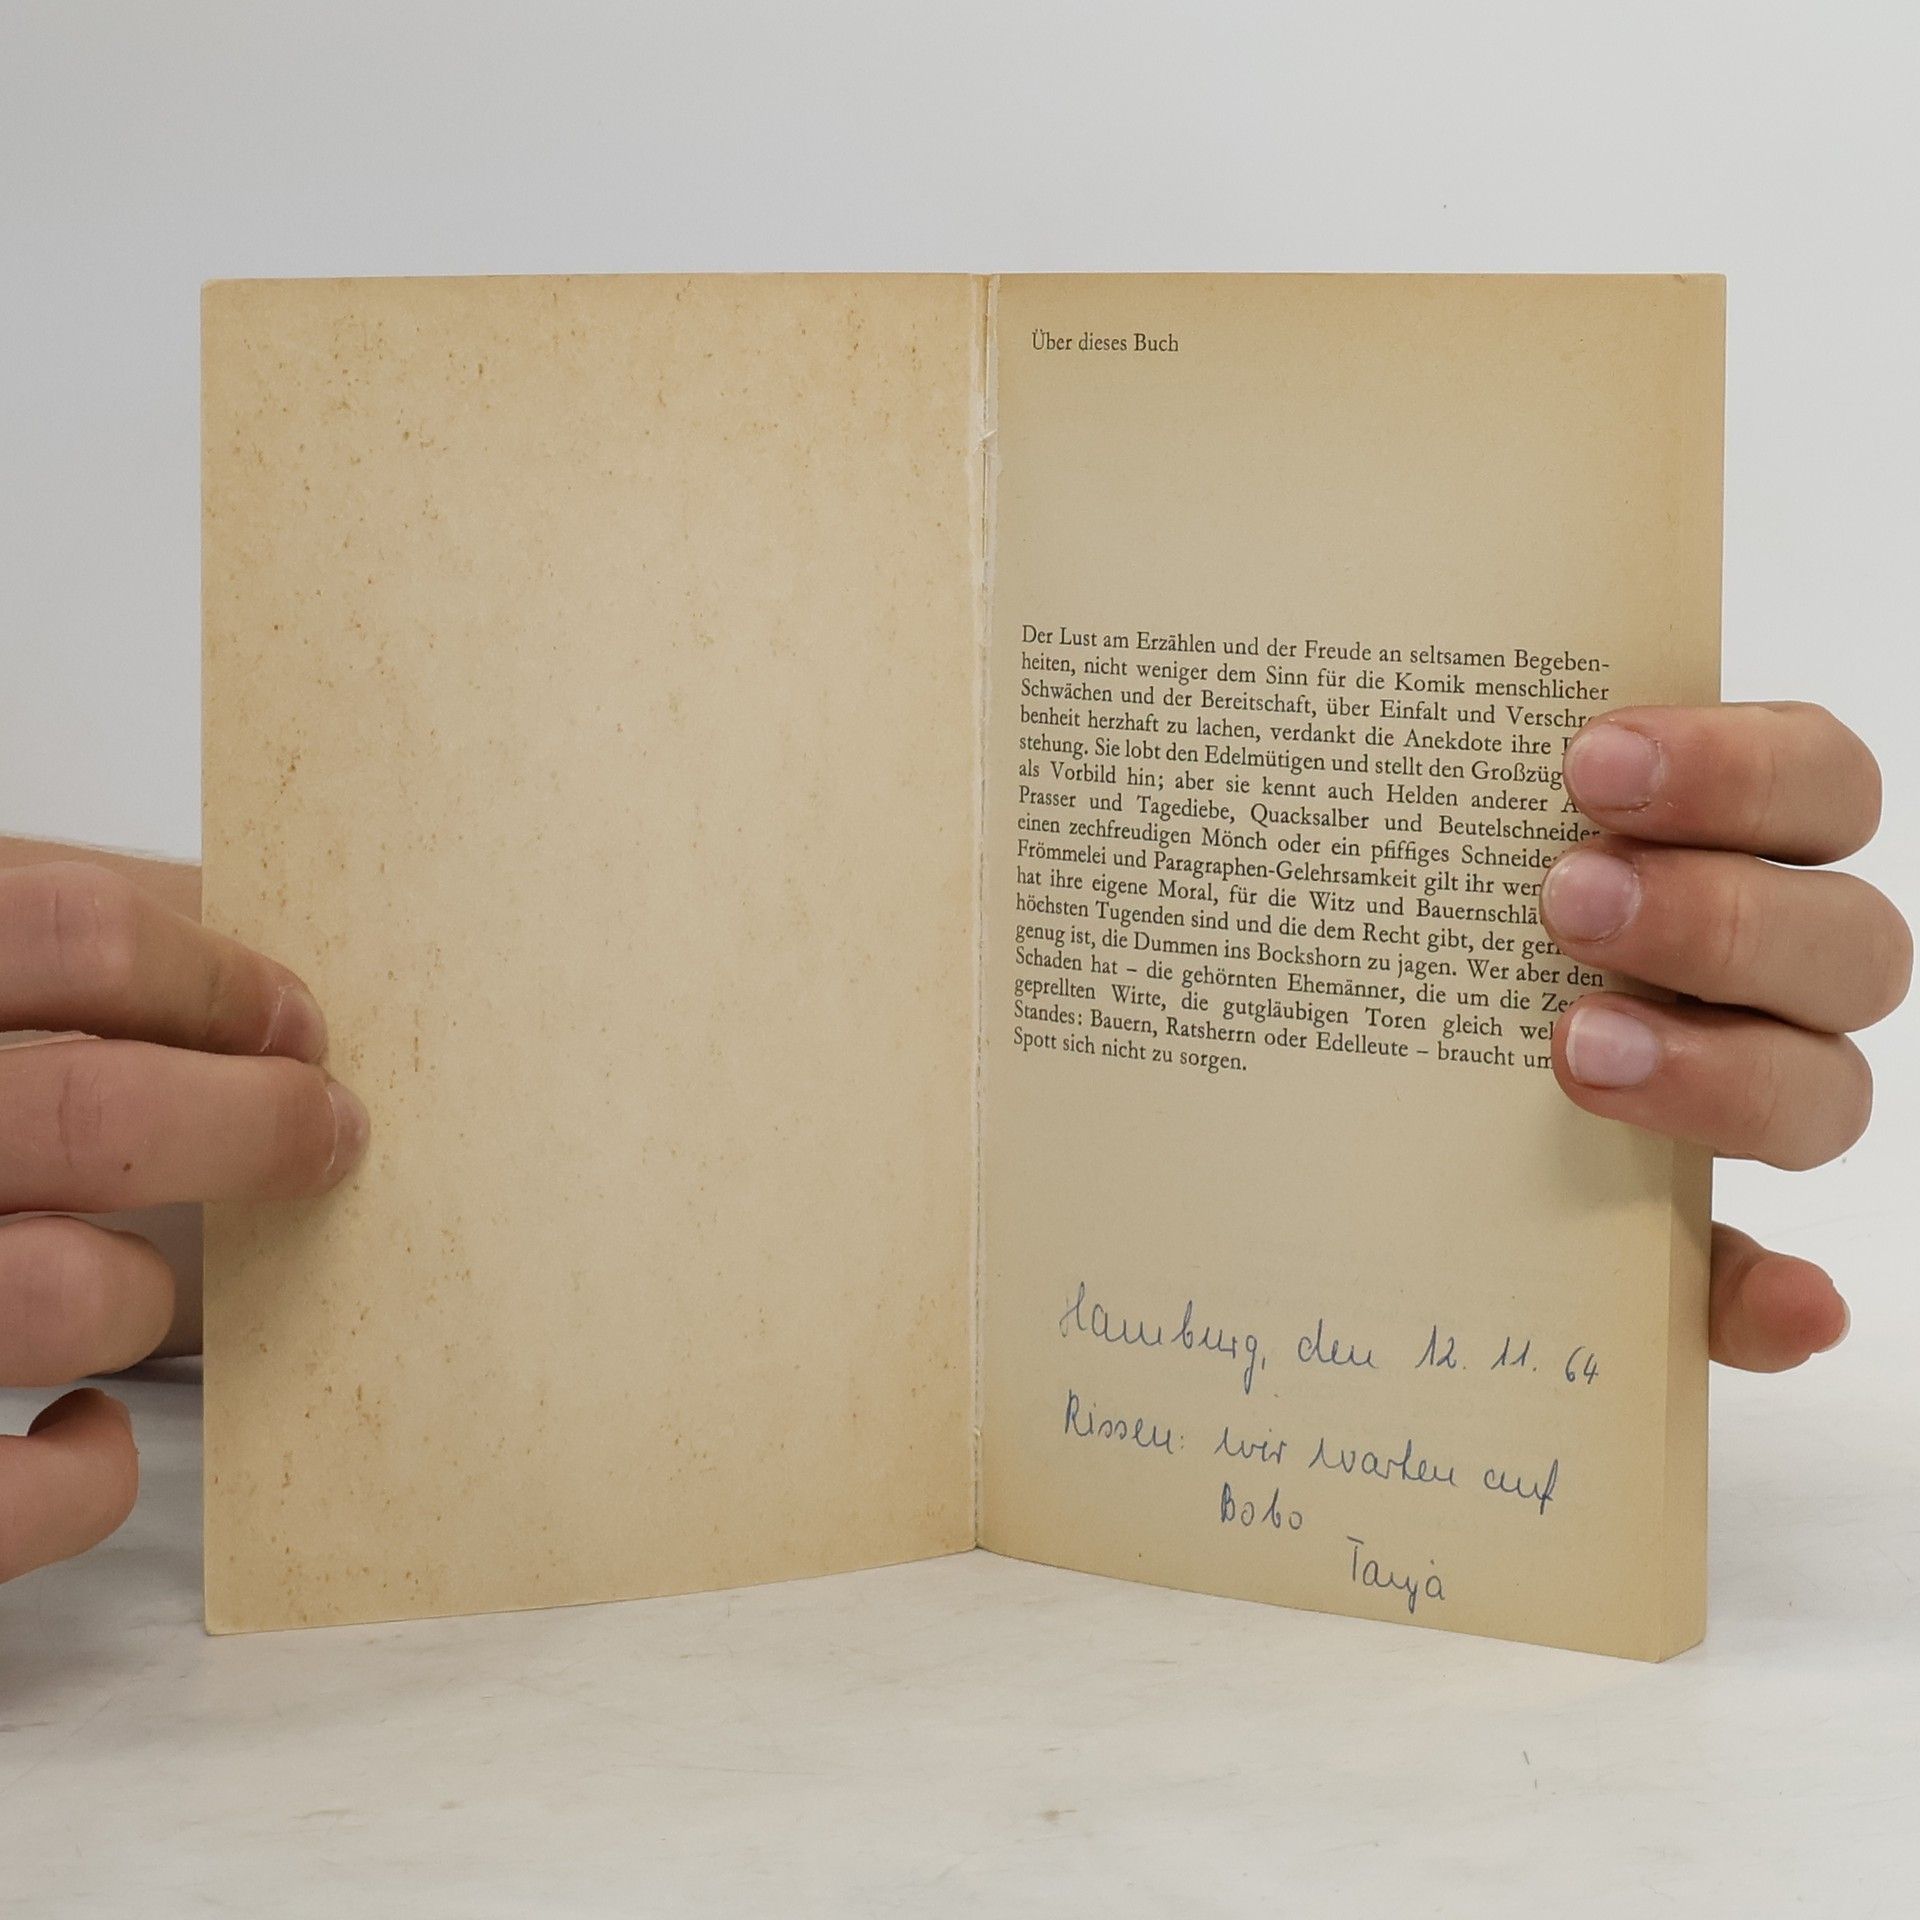 Über dieses Buch
Der Lust am Erzählen und der Freude an seltsamen Begeben-
heiten, nicht weniger dem Sinn für die Komik menschlicher
Schwächen und der Bereitschaft, über Einfalt und Verschro-
benheit herzhaft zu lachen, verdankt die Anekdote ihre
stehung. Sie lobt den Edelmütigen und stellt den
als Vorbild hin; aber sie kennt auch Helden anderer
Prasser und Tagediebe, Quacksalber und Beutelschneider
einen zechfreudigen Mönch oder ein pfiffiges
Frömmelei und Paragraphen-Gelehrsamkeit gilt ihr
hat ihre eigene Moral, für die Witz und
höchsten Tugenden sind und die dem Recht gibt, der
genug ist, die Dummen ins Bockshorn zu jagen. Wer aber den
Schaden hat – die gehörnten Ehemänner, die um die
geprellten Wirte, die gutgläubigen Toren gleich
Standes: Bauern, Ratsherrn oder Edelleute – braucht um
Spott sich nicht zu sorgen.
Hamburg, den 12. 11. 64
Rissen: wir warten auf
Bobo
Tanja